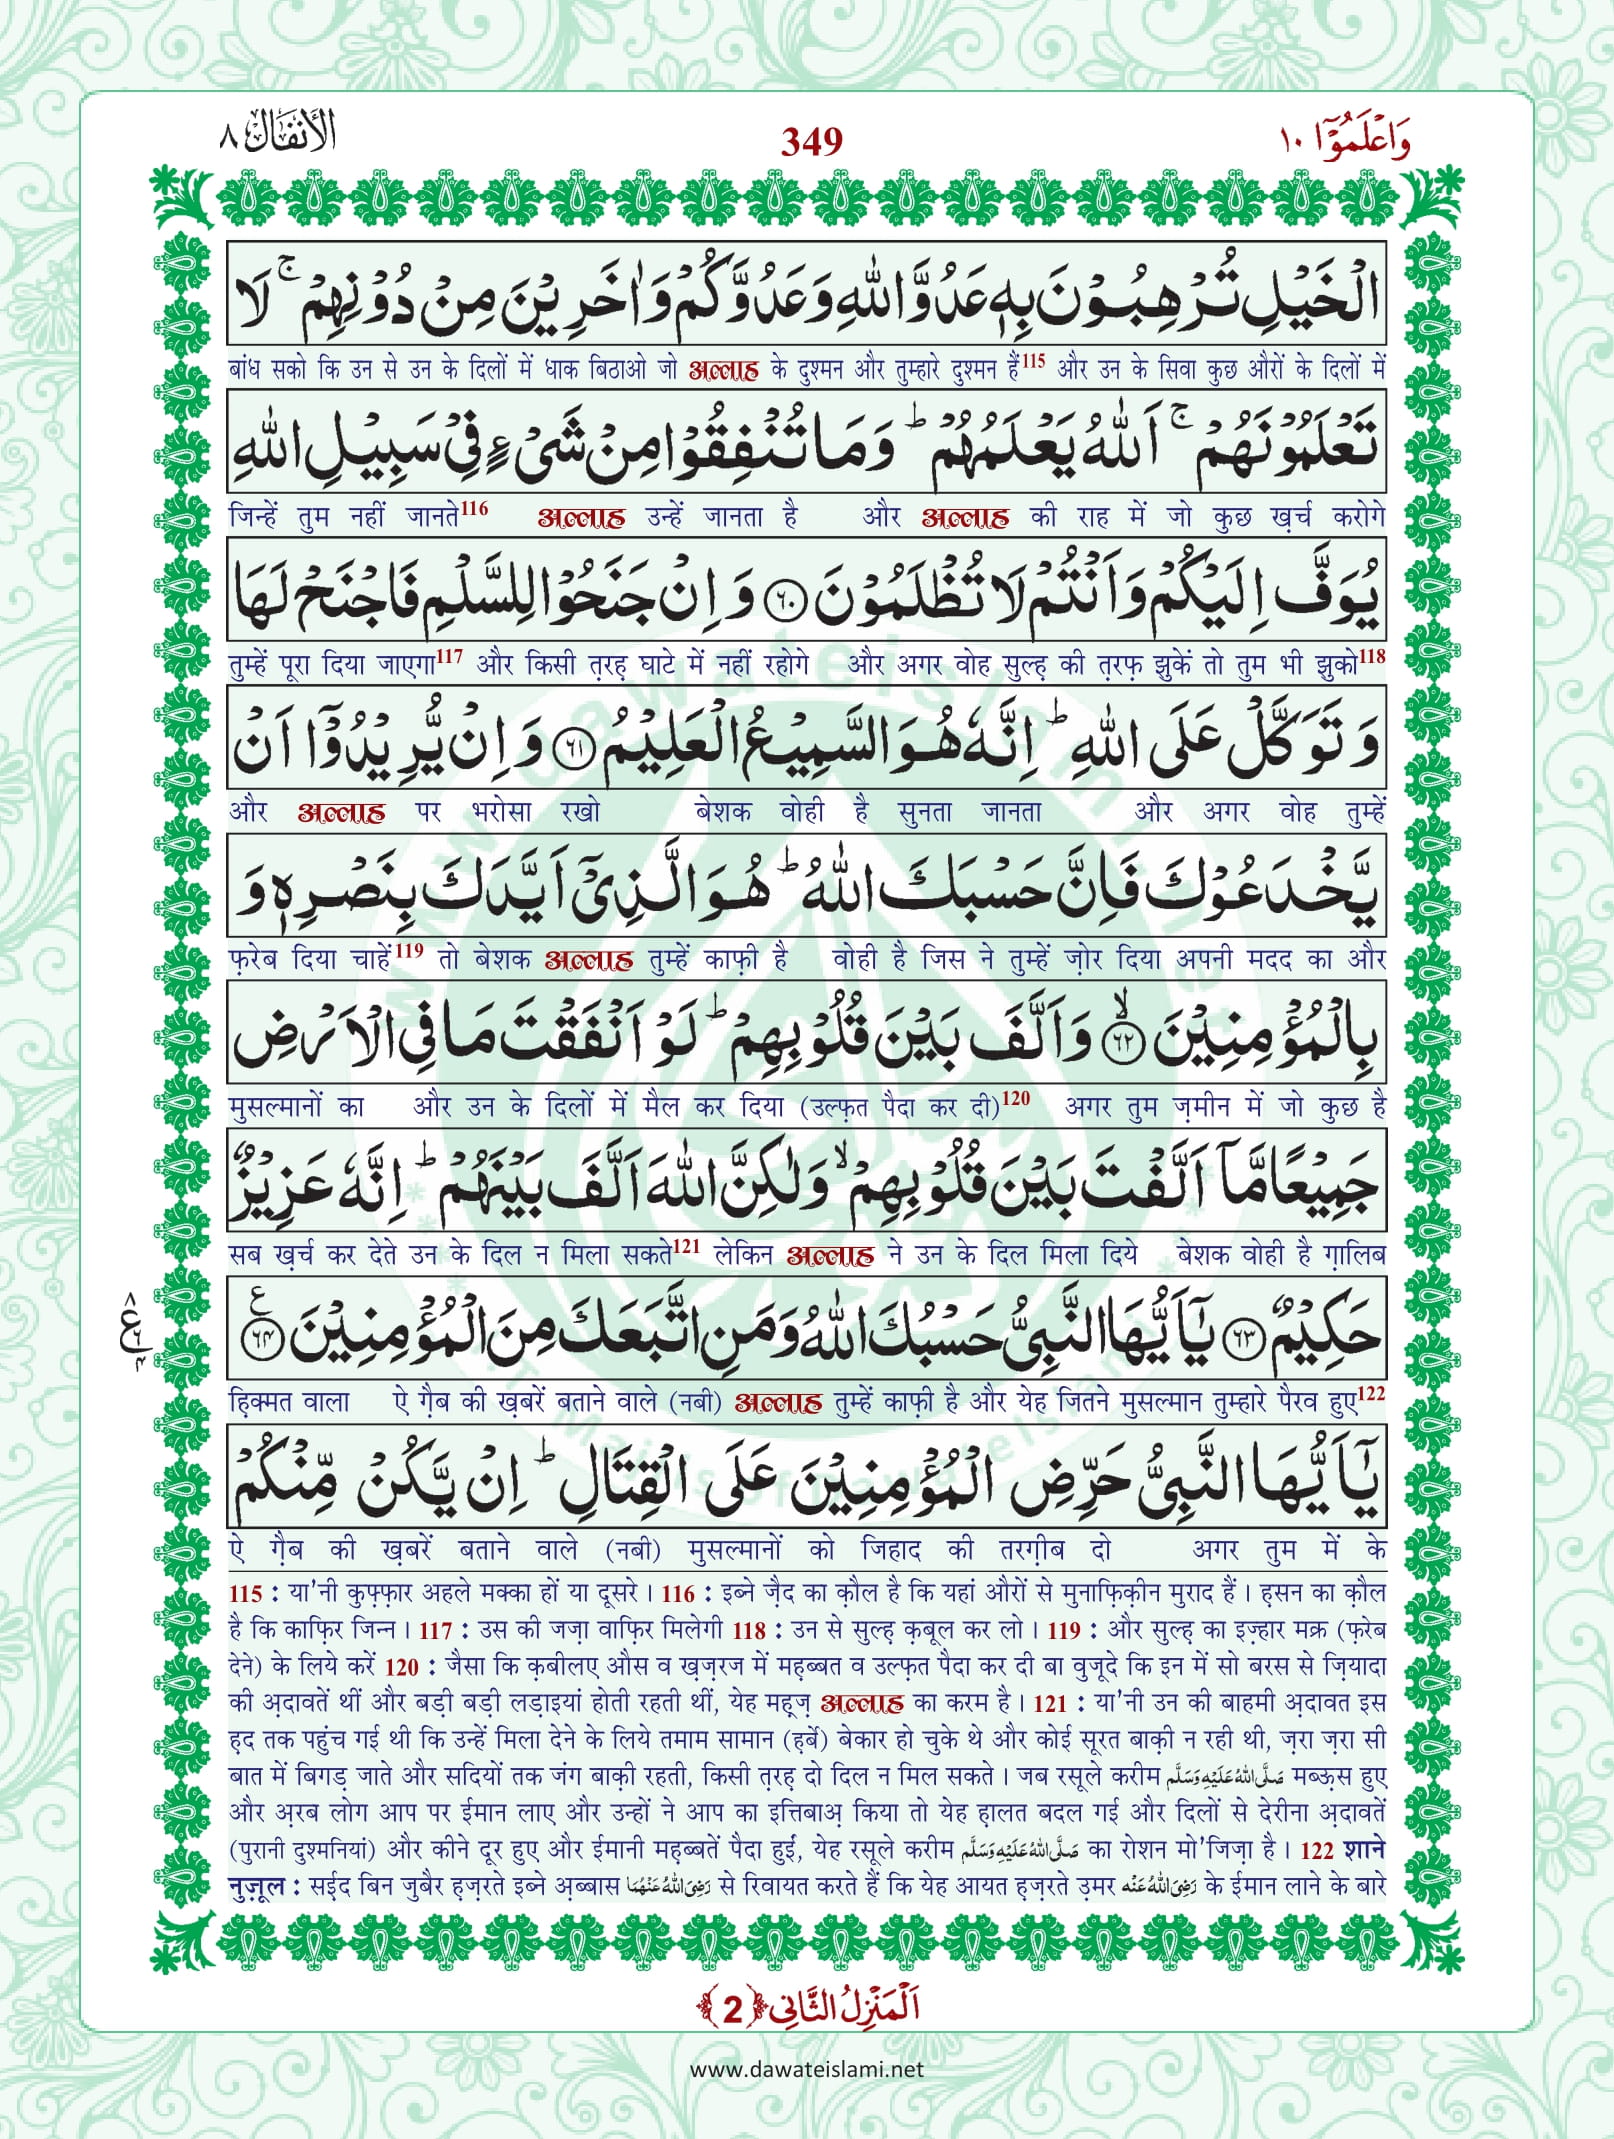 وَاعْلَمُوْۤا ١٠
349
الْاَنْفَال ٨
الْخَیْلِ تُرْهِبُوْنَ بِهٖ عَدُوَّ اللّٰهِ وَعَدُوَّكُمْ وَاٰخَرِیْنَ مِنْ دُوْنِهِمْ ۚ لَا
बांध सको कि उन से उन के दिलों में धाक बिठाओ जो अल्लाह के दुश्मन और तुम्हारे दुश्मन हैं115 और उन के सिवा कुछ औरों के दिलों में
تَعْلَمُوْنَهُمْ ۚ اَللّٰهُ یَعْلَمُهُمْ ؕ وَمَا تُنْفِقُوْا مِنْ شَیْءٍ فِیْ سَبِیْلِ اللّٰهِ
जिन्हें तुम नहीं जानते116 अल्लाह उन्हें जानता है और अल्लाह की राह में जो कुछ ख़र्च करोगे
یُوَفَّ اِلَیْكُمْ وَاَنْتُمْ لَا تُظْلَمُوْنَ ۝٦٠ وَاِنْ جَنَحُوْا لِلسَّلْمِ فَاجْنَحْ لَهَا
तुम्हें पूरा दिया जाएगा117 और किसी त़रह़ घाटे में नहीं रहोगे और अगर वोह सुल्ह़ की त़रफ़ झुकें तो तुम भी झुको118
وَتَوَكَّلْ عَلَی اللّٰهِ ؕ اِنَّهٗ هُوَ السَّمِیْعُ الْعَلِیْمُ ۝٦١ وَاِنْ یُّرِیْدُوْۤا اَنْ
और अल्लाह पर भरोसा रखो बेशक वोही है सुनता जानता और अगर वोह तुम्हें
یَّخْدَعُوْكَ فَاِنَّ حَسْبَكَ اللّٰهُ ؕ هُوَ الَّذِیْۤ اَیَّدَكَ بِنَصْرِهٖ وَ
फ़रेब दिया चाहें119 तो बेशक अल्लाह तुम्हें काफ़ी है वोही है जिस ने तुम्हें ज़ोर दिया अपनी मदद का और
بِالْمُؤْمِنِیْنَ ۝٦٢ۙ وَاَلَّفَ بَیْنَ قُلُوْبِهِمْ ؕ لَوْ اَنْفَقْتَ مَا فِی الْاَرْضِ
मुसल्मानों का और उन के दिलों में मैल कर दिया (उल्फ़त पैदा कर दी)120 अगर तुम ज़मीन में जो कुछ है
جَمِیْعًا مَّاۤ اَلَّفْتَ بَیْنَ قُلُوْبِهِمْ ۙ وَلٰكِنَّ اللّٰهَ اَلَّفَ بَیْنَهُمْ ؕ اِنَّهٗ عَزِیْزٌ
सब ख़र्च कर देते उन के दिल न मिला सकते121 लेकिन अल्लाह ने उन के दिल मिला दिये बेशक वोही है ग़ालिब
حَكِیْمٌ ۝٦٣ یٰۤاَیُّهَا النَّبِیُّ حَسْبُكَ اللّٰهُ وَمَنِ اتَّبَعَكَ مِنَ الْمُؤْمِنِیْنَ ۝٦٤ ع
٨ ع ٦ ٤
ह़िक्मत वाला ऐ ग़ैब की ख़बरें बताने वाले (नबी) अल्लाह तुम्हें काफ़ी है और येह जितने मुसल्मान तुम्हारे पैरव हुए122
یٰۤاَیُّهَا النَّبِیُّ حَرِّضِ الْمُؤْمِنِیْنَ عَلَی الْقِتَالِ ؕ اِنْ یَّكُنْ مِّنْكُمْ
ऐ ग़ैब की ख़बरें बताने वाले (नबी) मुसल्मानों को जिहाद की तरग़ीब दो अगर तुम में के
115 : या'नी कुफ़्फ़ार अहले मक्का हों या दूसरे। 116 : इब्ने ज़ैद का क़ौल है कि यहां औरों से मुनाफ़िक़ीन मुराद हैं। ह़सन का क़ौल
है कि काफ़िर जिन्न। 117 : उस की जज़ा वाफ़िर मिलेगी 118 : उन से सुल्ह़ क़बूल कर लो। 119 : और सुल्ह़ का इज़्हार मक्र (फ़रेब
देने) के लिये करें 120 : जैसा कि क़बीलए औस व ख़ज़रज में मह़ब्बत व उल्फ़त पैदा कर दी बा वुजूदे कि इन में सो बरस से ज़ियादा
की अ़दावतें थीं और बड़ी बड़ी लड़ाइयां होती रहती थीं, येह मह़्ज़ अल्लाह का करम है। 121 : या'नी उन की बाहमी अ़दावत इस
ह़द तक पहुंच गई थी कि उन्हें मिला देने के लिये तमाम सामान (ह़र्बे) बेकार हो चुके थे और कोई सूरत बाक़ी न रही थी, ज़रा ज़रा सी
बात में बिगड़ जाते और सदियों तक जंग बाक़ी रहती, किसी त़रह़ दो दिल न मिल सकते। जब रसूले करीम صَلَّی اللّٰهُ عَلَیْهِ وَسَلَّم मब्ऊ़स हुए
और अ़रब लोग आप पर ईमान लाए और उन्हों ने आप का इत्तिबाअ़ किया तो येह ह़ालत बदल गई और दिलों से देरीना अ़दावतें
(पुरानी दुश्मनियां) और कीने दूर हुए और ईमानी मह़ब्बतें पैदा हुईं, येह रसूले करीम صَلَّی اللّٰهُ عَلَیْهِ وَسَلَّم का रोशन मो'जिज़ा है। 122 शाने
नुज़ूल : सई़द बिन जुबैर ह़ज़रते इब्ने अ़ब्बास رَضِیَ اللّٰهُ عَنْهُمَا से रिवायत करते हैं कि येह आयत ह़ज़रते उ़मर رَضِیَ اللّٰهُ عَنْه के ईमान लाने के बारे
اَلْمَنْزِلُ الثَّانِی ﴿2﴾
www.dawateislami.net